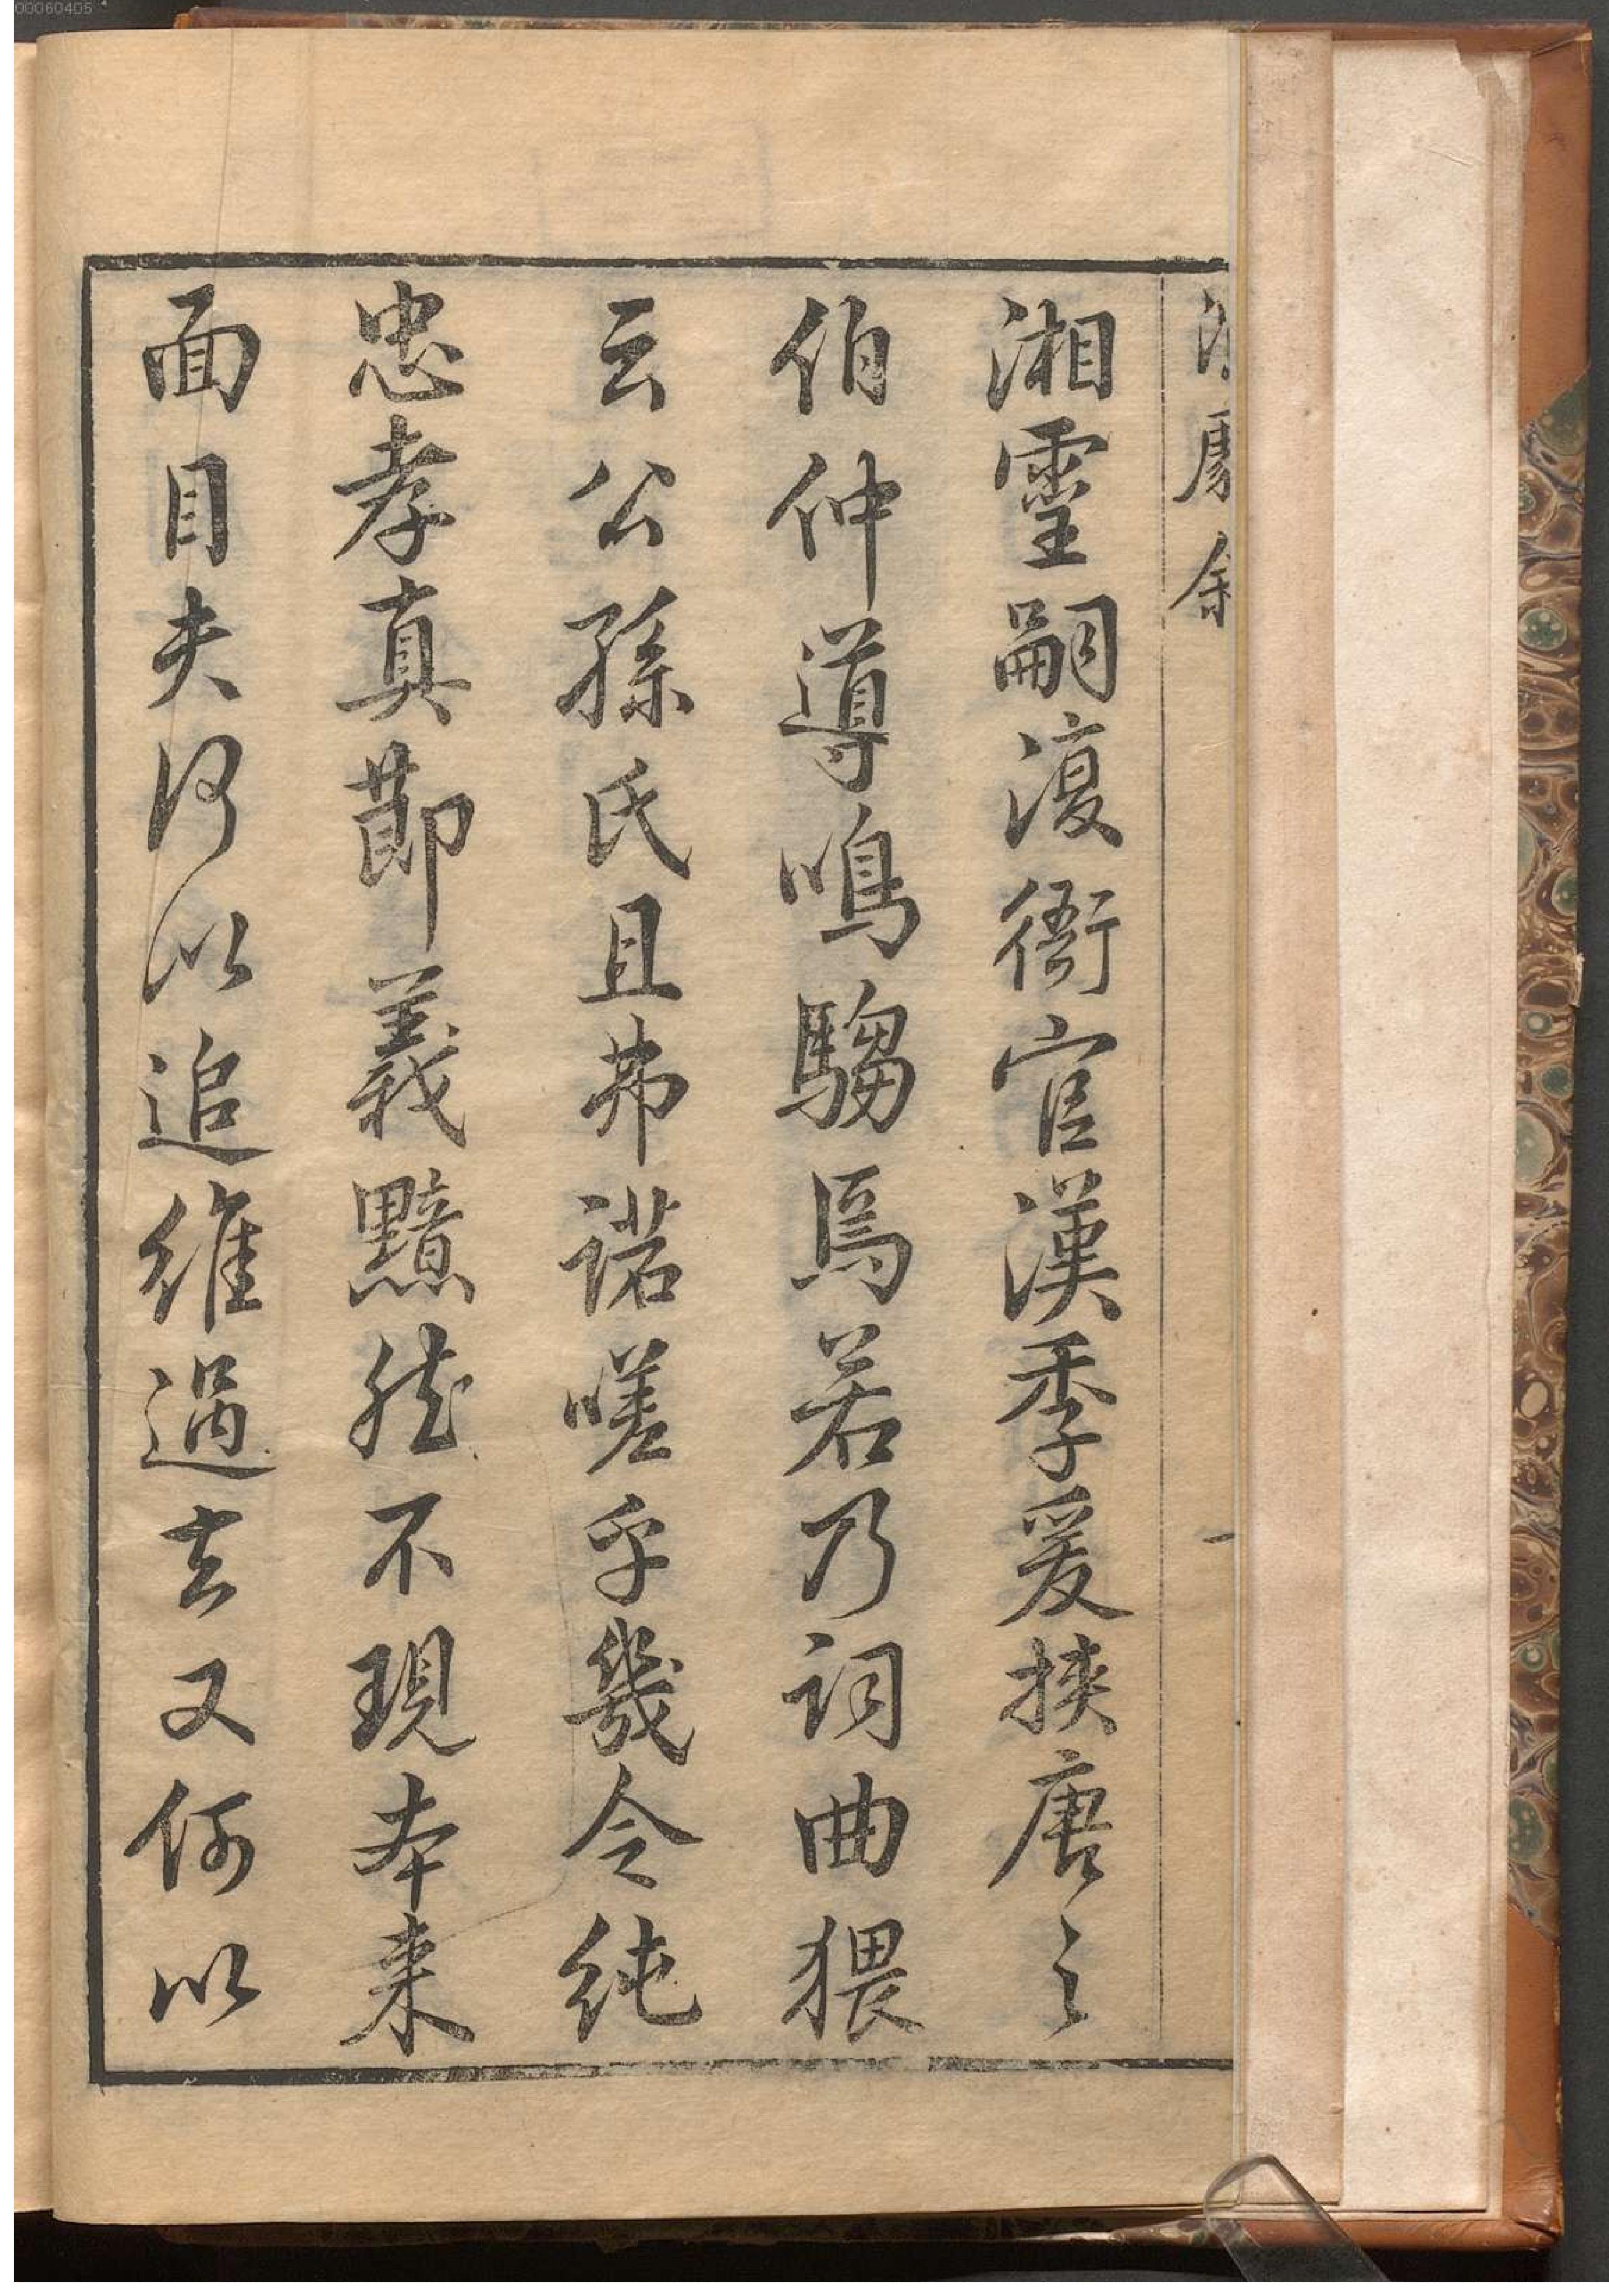 湘靈嗣復衙官漢季爰挾唐之
伯仲導鳴騶焉若乃詞曲猥
云公孫氏且弗諾嗟乎幾令純
忠孝真節義黯然不現本来
面目夫何以追維過去又何以
一
00060405